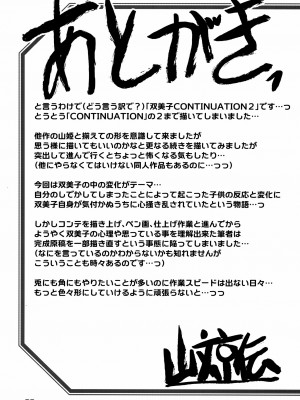 あとがき,
と言うわけで(どう言う訳で?)「双美子CONTINUATION2」です…っ
とうとう「CONTINUATION」の2まで描いてしまいました…
他作の山姫と揃えての形を意識して来ましたが
思う様に描いてもいいのかなと更なる続きを描いてみましたが
突出して進んで行くとちょっと怖くなる気もしたり…
(他にやらなくてはいけない同人作品もあるのに…っ)
今回は双美子の中の変化がテーマ…
自分のしでかしてしまったことによって起こった子供の反応と変化に
双美子自身が気付かぬうちに心掻き乱されていたという物語…っ
しかしコンテを描き上げ、ペン画、仕上げ作業と進んでから
ようやく双美子の心理や思っている事を理解出来た筆者は
完成原稿を一部描き直すという事態に陥ってしまいました…
(なにを言っているのかわからないかも知れませんが
こういうことも時々あるのです…っ)
兎にも角にもやりたいことが多いのに作業スピードは出ない日々…
もっと色々形にしていけるように頑張らないと…っっ
山文京伝